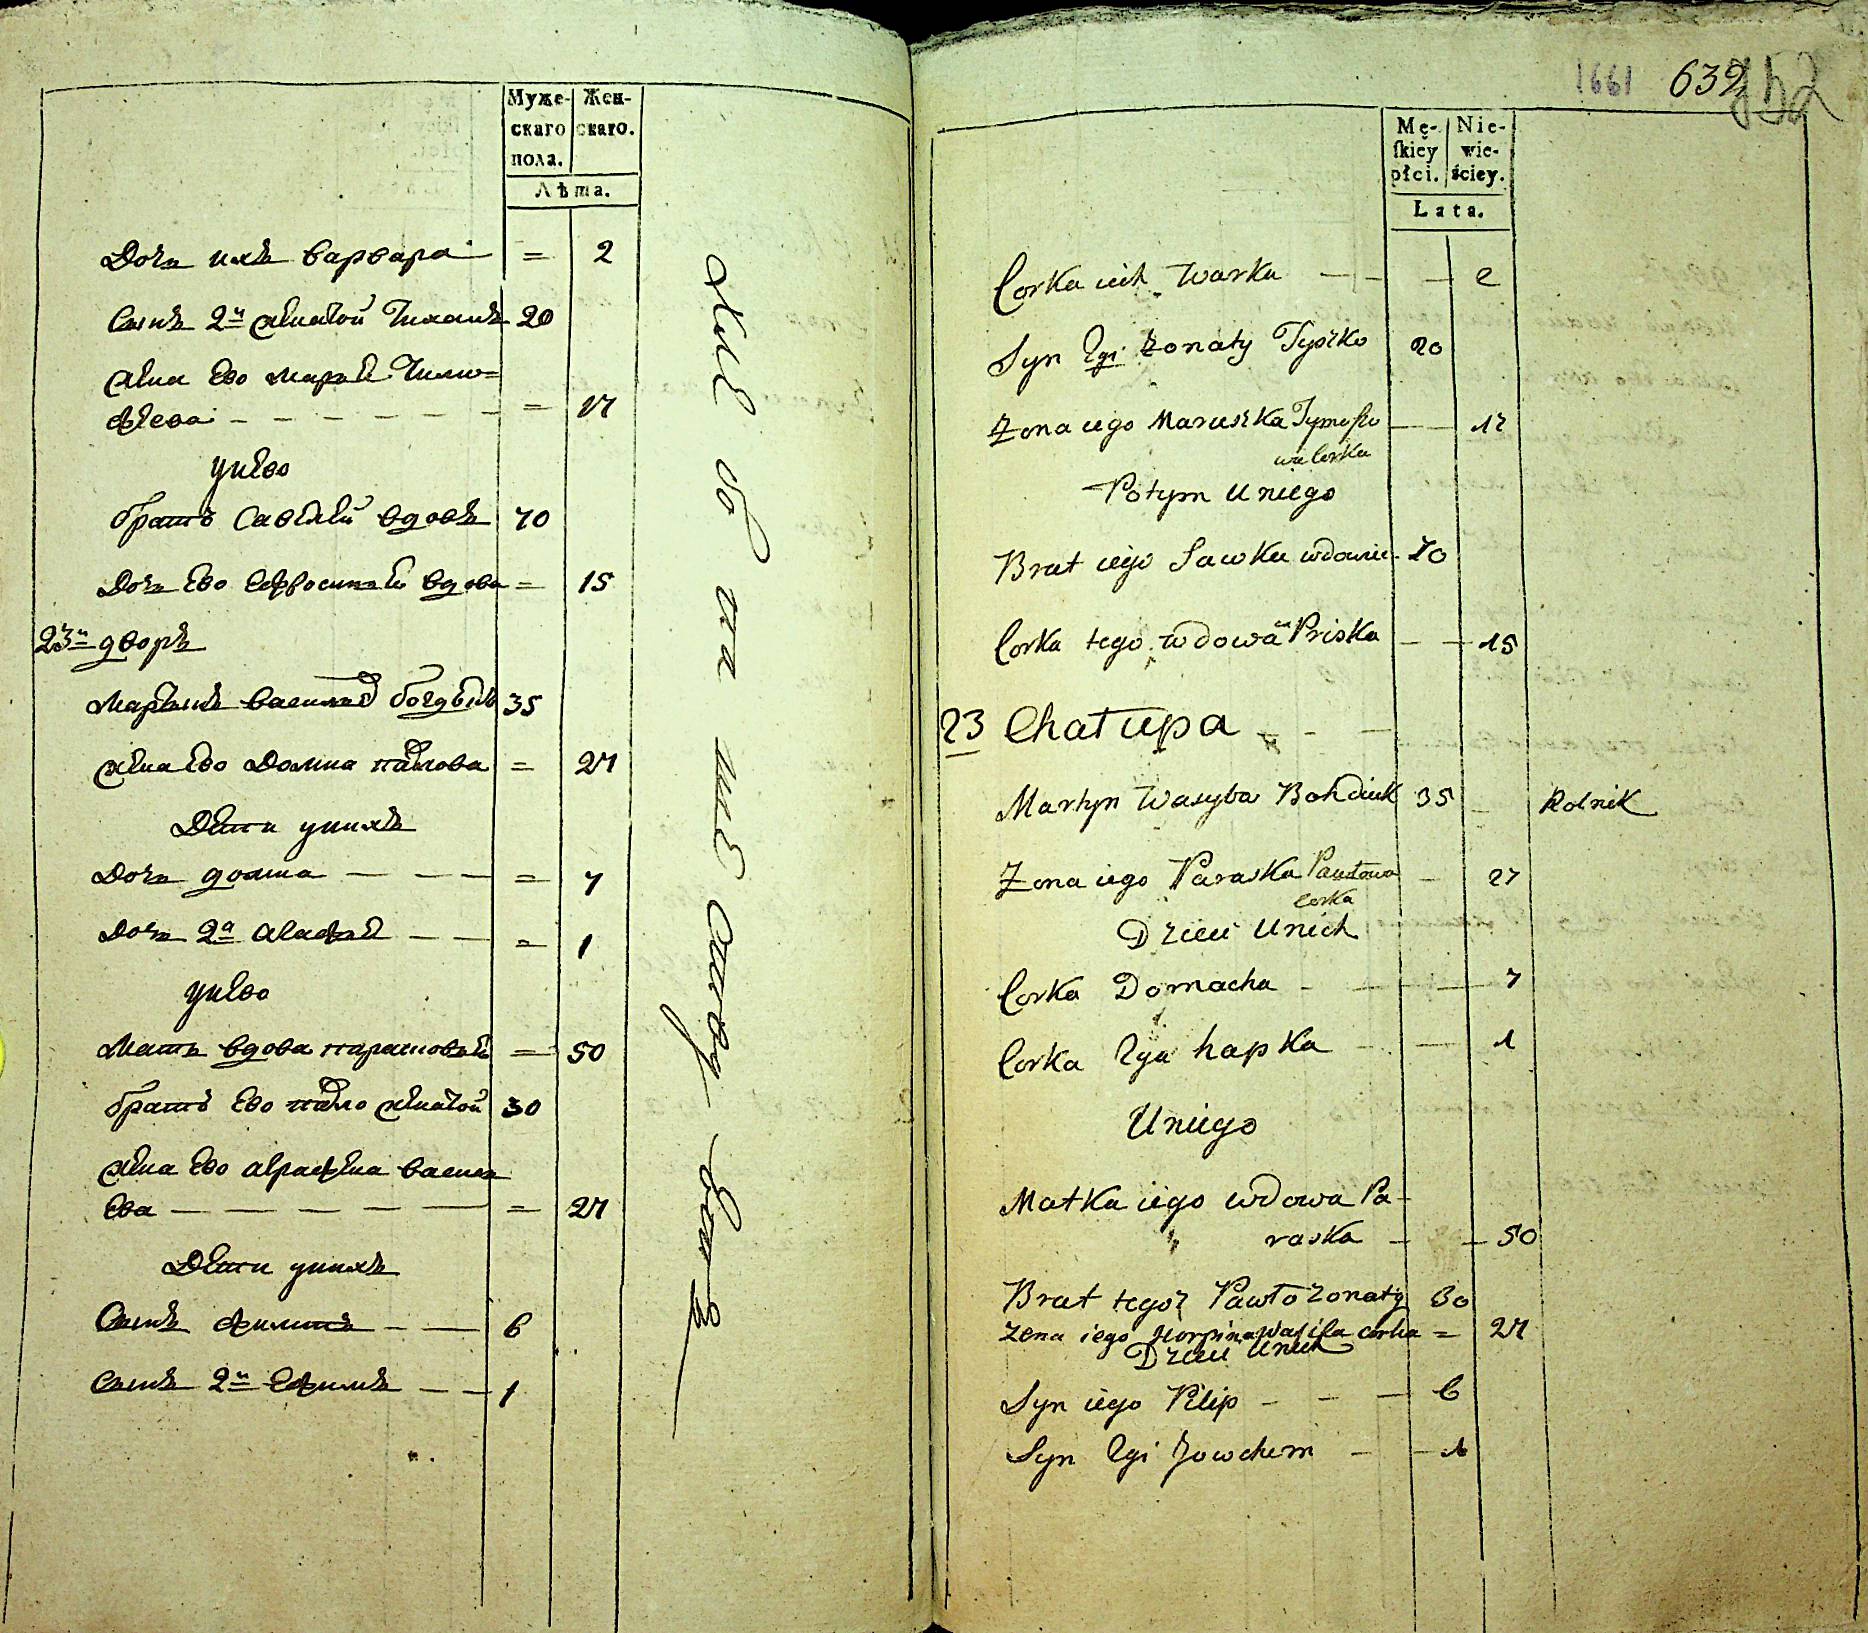 Муже-
скаго
пола.
Жен-
скаго.
Лѣта.
Дочь ихъ варвара = 2
Сынъ 2й женатой Тихонъ 20
жена Ево марѳа Тимо=
ѳеева = 17
унево
братъ Савелей вдовъ 70
Дочь Ево Ефросинья вдова = 15
23й дворъ
Мартинъ василев богдюкъ 35
жена Ево Домна павлова = 27
Дѣти унихъ
Дочь домна = 7
Дочь 2я агафья = 1
унево
Мать вдова парасковья = 50
братъ Ево павло женатой 30
жена Ево аграфена василь
Ева = 27
Дѣти унихъ
Сынъ филипъ 6
Сынъ 2й Ефимъ 1
1661 632
Mę-
ſkiey
płci.
Nie-
wie-
ściey.
Lata.
Corka iich Warka 2
Syn 2gi żonaty Tyszko 20
Żona iego Maruszka Tymofio 17
wa Corka
Potym Uniego
Brat iego Sawka wdowiec 70
Corka tego wdowa Priska 15
23 Chałupa
Martyn Wasyba Bohdiuk 35 Rolnik
Żona iego Paraska Pawłowa 27
corka
Dzieci Unich
Corka Domacha 7
Corka 2ga hapka 1
Uniego
Matka iego wdowa Pa-
raska 50
Brat tegoż Pawło żonaty 30
żena iego Horpina Wasila corka = 27
Dzieci Unich
Syn iego Pilip 6
Syn 2gi Jowchem 1